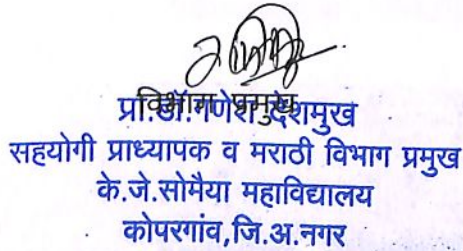 विभाग प्रमुख
प्रा.डॉ.गणेश देशमुख
सहयोगी प्राध्यापक व मराठी विभाग प्रमुख
के.जे.सोमैया महाविद्यालय
कोपरगांव,जि.अ.नगर